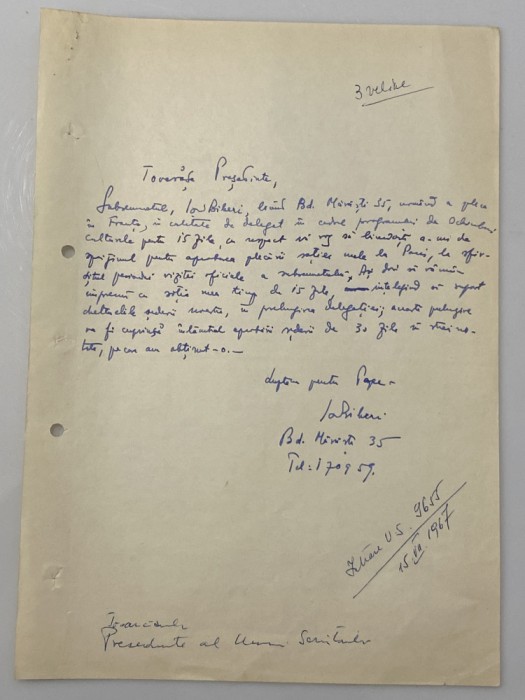 3 velike
Tovarășe Președinte,
Subsemnatul, Ion Biberi, Bd. Mărăști 35, urmând a pleca
în Franța, în calitate de delegat în cadrul programei de
culturale pentru 15 zile, cu respect vă rog să a-mi da
sprijinul pentru aprobarea plecării soției mele la Paris, la sfâr-
șitul perioadei vizitei oficiale a subsemnatului. Aș dori să rămân
împreună cu soția mea timp de 15 zile, înțelegând să suport
cheltuielile șederii noastre, în prelungirea delegației; această prelungire
va fi aprobării șederii de 30 zile în străină-
tate, pe care am obținut-o.—
Luptăm pentru Pace
Ion Biberi
Bd. Mărăști 35
Tel: 170959.
U S. 9655
15.VII 1967
Tovarășului
Președinte al Uniunii Scriitorilor